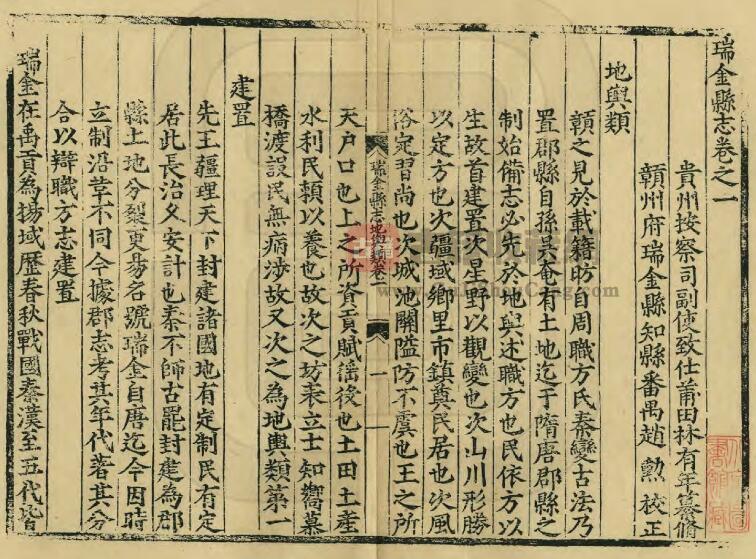 瑞金縣志卷之一
貴州按察司副使致仕莆田林有年纂脩
贛州府瑞金縣知縣番禺趙勲校正
地輿類
贛之見於載籍昉自周職方氏秦變古法乃
置郡縣自孫吳奄有土地迄于隋唐郡縣之
制始備志必先於地輿述職方也民依方以
生故首建置次星野以觀變也次山川形勝
以定方也次疆域鄉里市鎮奠民居也次風
俗定習尚也次城池關隘防不虞也王之所
瑞金縣志地輿類卷一
一
天戶口也上之所資貢賦謡役也土田土產
水利民頼以養也故次之坊表立士知嚮慕
橋渡設民無病涉故又次之為地輿類第一
建置
先王疆理天下封建諸國地有定制民有定
居此長治久安計也秦不師古罷封建為郡
縣土地分裂更易名號瑞金自唐迄今因時
立制沿革不同今據郡志考其年代著其分
合以辯職方志建置
瑞金在禹貢為揚域歷春秋戰國秦漢至五代皆